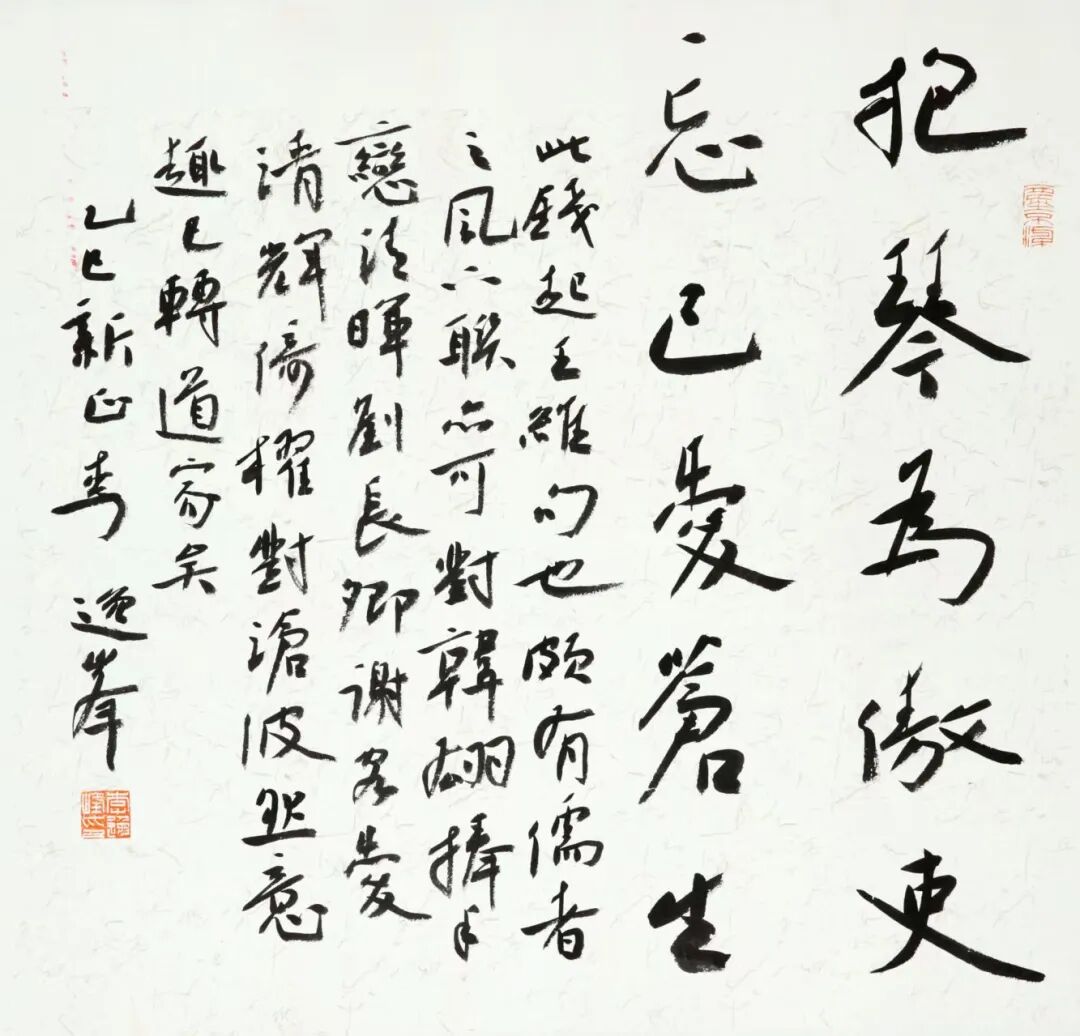 抱琴為傲吏
忘己愛蒼生
此錢起王維句也頗有儒者
之風下聯亦可對韓翃捧手
戀清暉劉長卿謝客愛
清輝倚櫂對滄波然意
趣已轉道家矣
乙巳新正書 逸峯